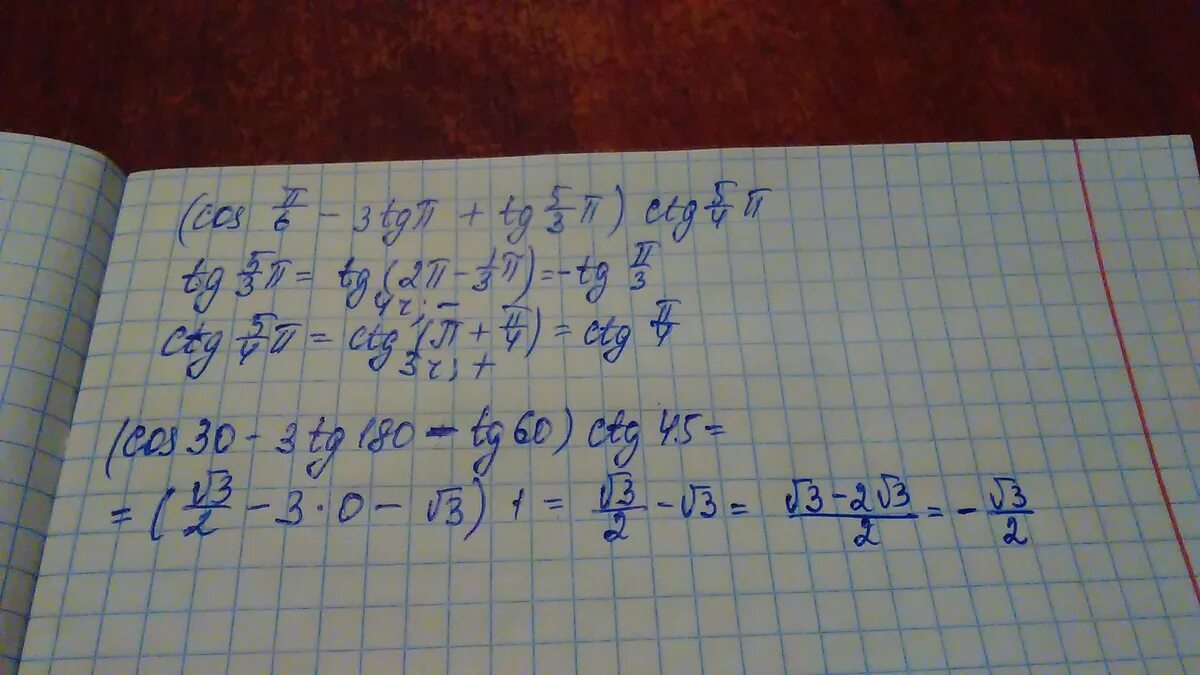 (cos π/6 - 3tgπ + tg 5/3 π) ctg 5/4 π
tg 5/3 π = tg (2π - 1/3 π) = -tg π/3
4ч; -
ctg 5/4 π = ctg (π + π/4) = ctg π/4
3ч; +
(cos 30 - 3tg 180 - tg 60) ctg 45 =
= (√3/2 - 3·0 - √3) 1 = √3/2 - √3 = (√3 - 2√3)/2 = -√3/2